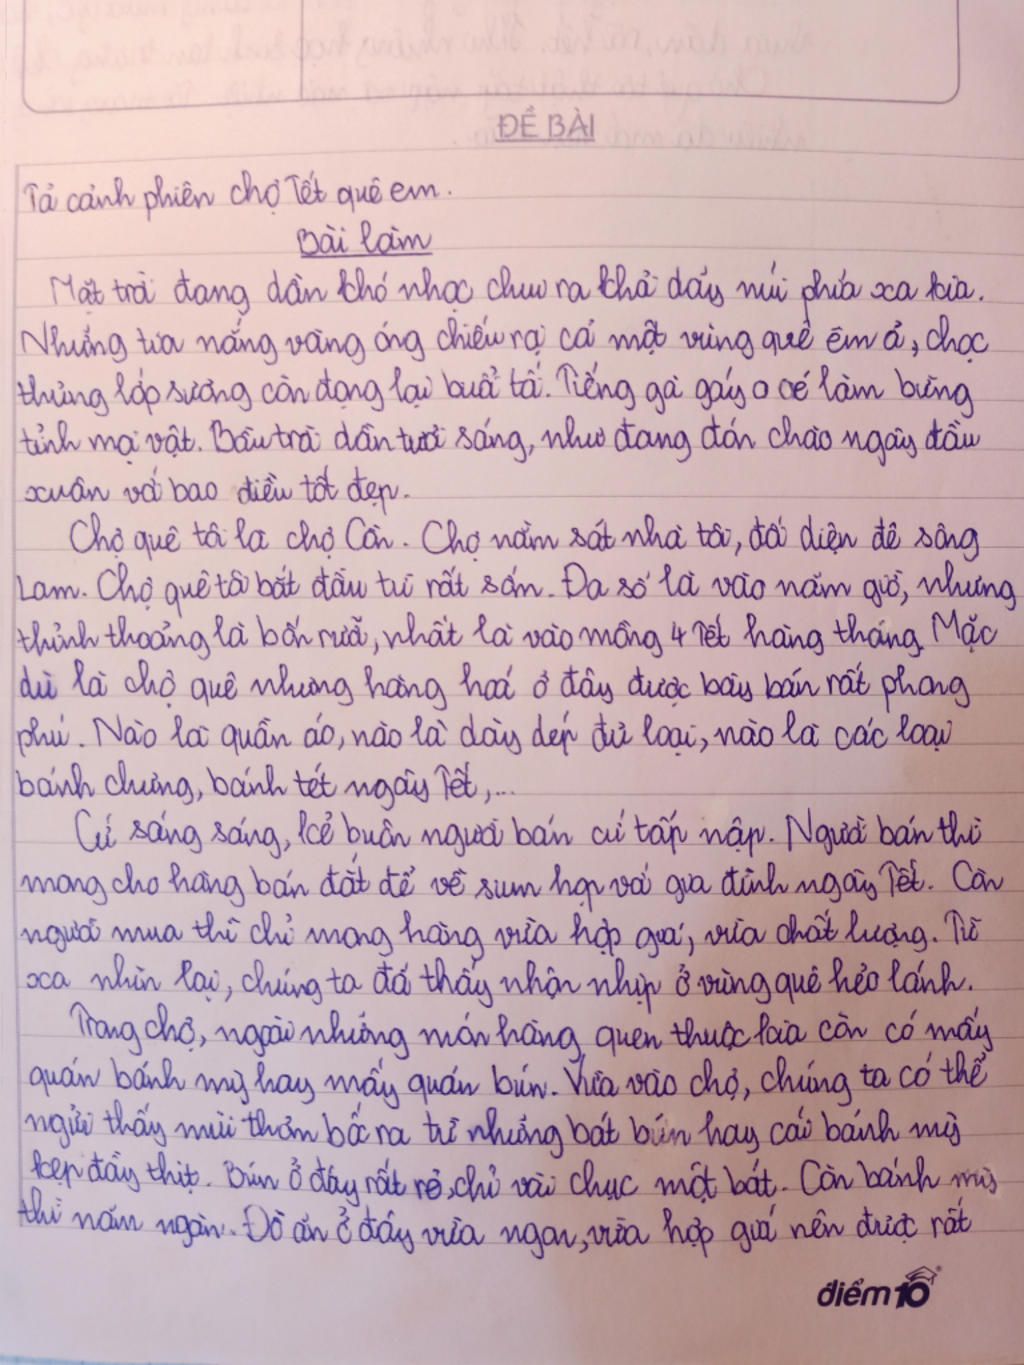 ĐỀ BÀI
Tả cảnh phiên chợ Tết quê em.
Bài làm
Mặt trời đang dần khó nhọc chui ra khỏi dãy núi phía xa kia.
Những tia nắng vàng óng chiếu rọi cả một vùng quê êm ả, chọc
thủng lớp sương còn đọng lại buổi tối. Tiếng gà gáy o é làm bừng
tỉnh mọi vật. Bầu trời dần tươi sáng, như đang đón chào ngày đầu
xuân với bao điều tốt đẹp.
Chợ quê tôi là chợ Cồn. Chợ nằm sát nhà tôi, đối diện đê sông
Lam. Chợ quê tôi bắt đầu từ rất sớm. Đa số là vào năm giờ, nhưng
thỉnh thoảng là bốn rưỡi, nhất là vào mồng 4 Tết hàng tháng. Mặc
dù là chợ quê nhưng hàng hoá ở đây được bày bán rất phong
phú. Nào là quần áo, nào là dày dép đủ loại, nào là các loại
bánh chưng, bánh tét ngày Tết,...
Cứ sáng sáng, kẻ buôn người bán cứ tấp nập. Người bán thì
mong cho hàng bán đắt để về sum họp với gia đình ngày Tết. Còn
người mua thì chỉ mong hàng vừa hợp giá, vừa chất lượng. Từ
xa nhìn lại, chúng ta đã thấy nhộn nhịp ở vùng quê hẻo lánh.
Trong chợ, ngoài những món hàng quen thuộc kia còn có mấy
quán bánh mỳ hay mấy quán bún. Vừa vào chợ, chúng ta có thể
ngửi thấy mùi thơm bốc ra từ những bát bún hay cái bánh mỳ
kẹp đầy thịt. Bún ở đây rất rẻ, chỉ vài chục một bát. Còn bánh mỳ
thì năm ngàn. Đồ ăn ở đây vừa ngon, vừa hợp giá nên được rất
điểm 10